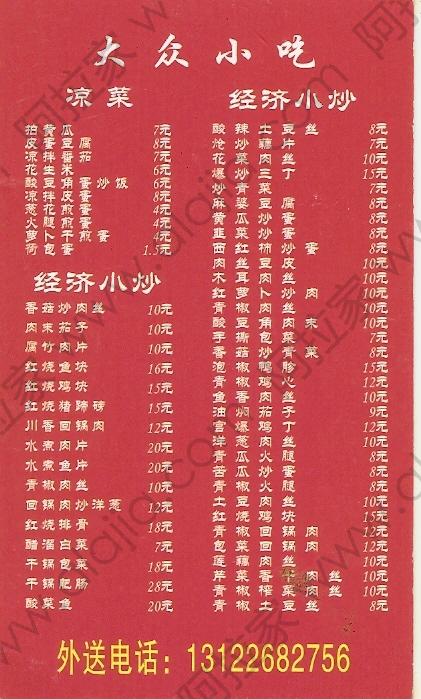 大众小吃
凉菜
拍黄瓜 7元
皮蛋豆腐 7元
凉拌番茄 7元
花生米 6元
酸豆角蛋炒饭 6元
凉拌皮蛋 8元
葱花煎蛋 4元
火腿煎蛋 4元
萝卜干煎蛋 4元
荷包蛋 1.5元
经济小炒
香菇炒肉丝 10元
肉末茄子 10元
腐竹肉片 10元
红烧鱼块 16元
红烧鸡块 15元
红烧猪蹄膀 15元
川香回锅肉 12元
水煮肉片 20元
水煮鱼片 20元
青椒肉丝 10元
回锅肉炒洋葱 12元
红烧排骨 18元
醋溜白菜 7元
干锅肉 18元
干锅肥肠 28元
酸菜鱼 20元
经济小炒
酸辣土豆丝 8元
炝炒藕片 7元
花菜肉丝 10元
爆炒三丁 15元
炒青菜 7元
麻婆豆腐 8元
黄瓜炒蛋 8元
韭菜炒蛋 8元
西红柿炒蛋 8元
肉丝豆皮 10元
木耳肉丝 10元
红萝卜炒肉 10元
青椒肉丝 10元
酸豆角肉末 8元
手撕包菜 7元
香菇炒青菜 8元
泡椒鸭胗 15元
青椒鸡心 12元
鱼香肉丝 10元
油焖茄子 9元
宫爆鸡丁 12元
洋葱肉丝 10元
青瓜火腿 8元
苦瓜炒蛋 8元
青椒火腿 8元
土豆肉丝 10元
红烧鸡块 15元
青椒回锅肉 12元
包菜回锅肉 12元
莲藕肉丝 10元
青椒 肉丝 10元
芹香 肉丝 10元
青椒土豆丝 8元
外送电话：13122682756
阿拉家 www.alajia.com